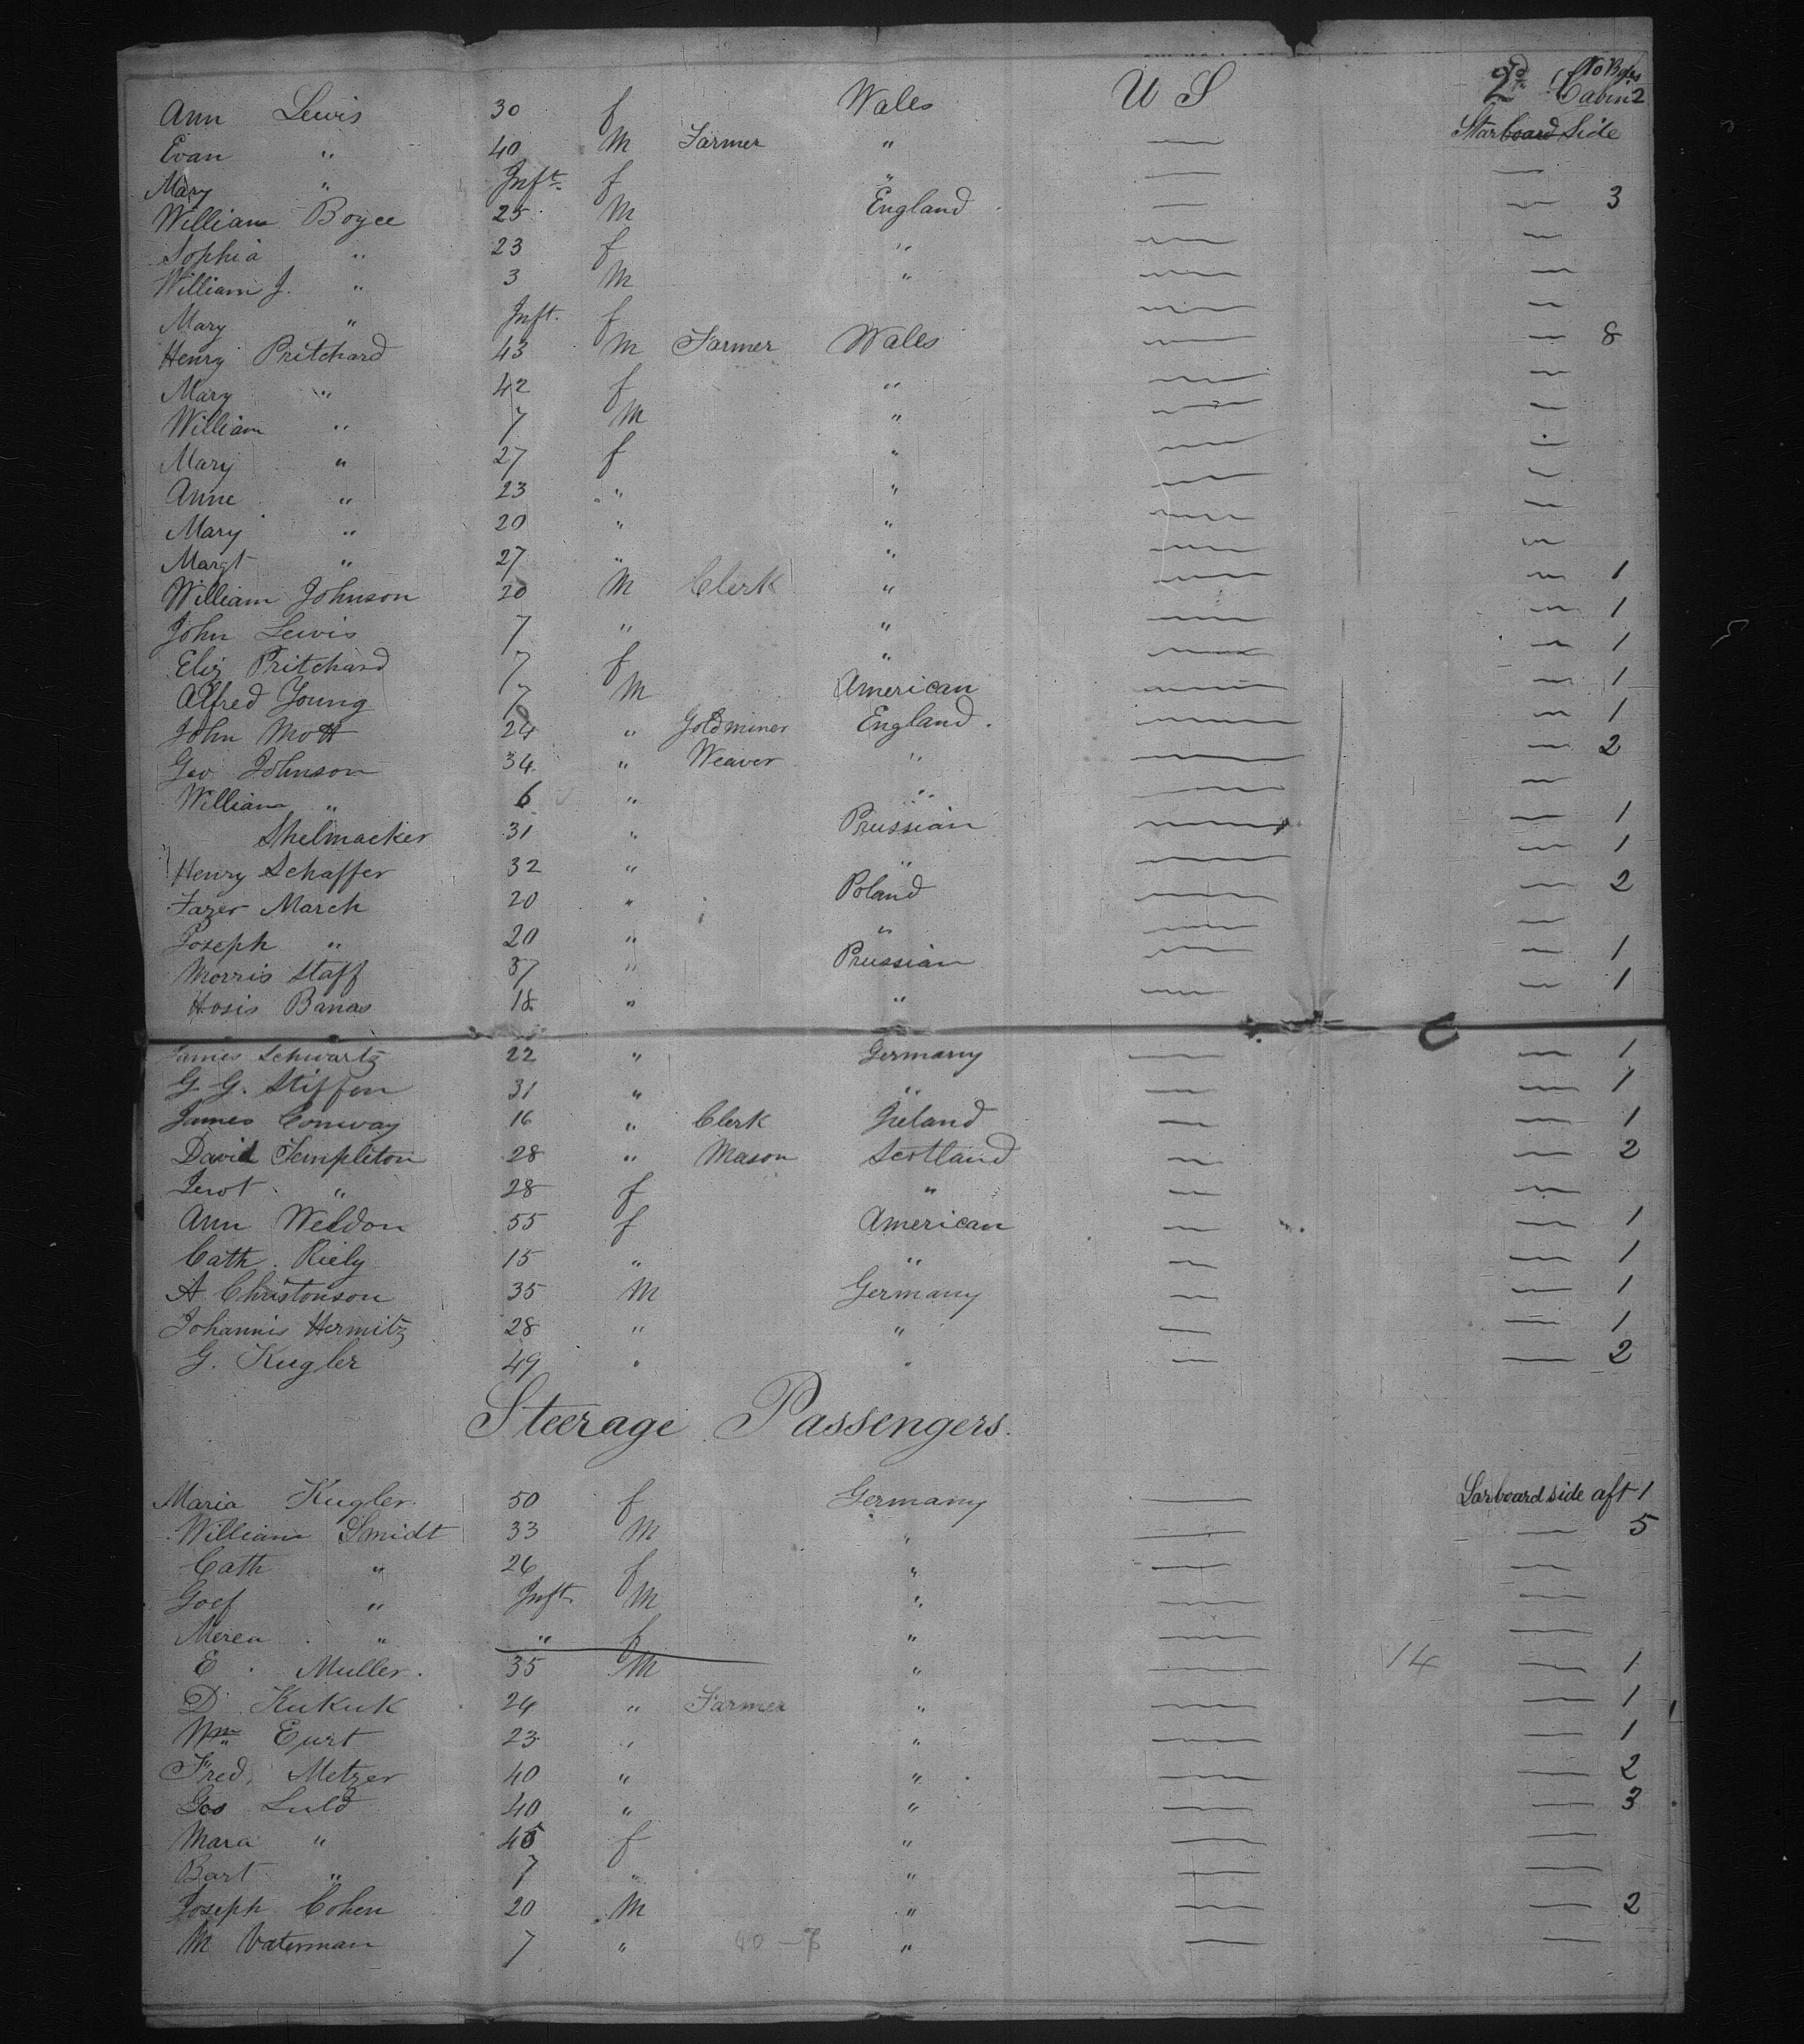 To Bgs
Ann Lewis 30 f Wales U S 2d Cabin 2
Starboard Side
Evan " 40 M Farmer " —
Mary " Inft. f " — —
William Boyce 25 M England — — 3
Sophia " 23 f " — —
William J. " 3 M " — —
Mary " Inft. f — —
Henry Pritchard 43 M Farmer Wales — — 8
Mary " 42 f " — —
William " 7 M " — —
Mary " 27 f " — —
Anne " 23 " " — —
Mary " 20 " " — —
Margt " 27 " " — —
William Johnson 20 M Clerk " — — 1
John Lewis 7 " " — — 1
Eliz Pritchard 7 f " — — 1
Alfred Young 7 M American — — 1
John Mott 24 " Goldminer England. — — 1
Geo Johnson 34 " Weaver " — — 2
William " 6 " " — —
Shelmacker 31 " Prussian — — 1
Henry Schaffer 32 " " — — 1
Fazer March 20 " Poland — — 2
Joseph " 20 " " — —
Morris Staff 37 " Prussian — — 1
Hosis Banas 18 " " — — 1
James Schwartz 22 " Germany — — 1
G. G. Stiffen 31 " " — — 1
James Conway 16 " Clerk Ireland — — 1
David Templeton 28 " Mason Scotland — — 2
" 28 f " — —
Ann Weldon 55 f American — — 1
Cath. Riely 15 " " — — 1
A Christonson 35 M Germany — — 1
Johannis Hermitz 28 " " — — 1
G. Kugler 49 " " — — 2
Steerage Passengers.
Maria Kugler. 50 f Germany — Larboard side aft 1
William Smidt 33 M " — — 5
Cath " 26 f " — —
Goef " Inft. M " — —
Merea " " f " — —
E. Muller. 35 M " — 14 — 1
D. Kukuk 24 " Farmer " — — 1
Wm Eurt 23 " " — — 1
Fred. Metzer 40 " " — — 2
Gos Luld 40 " " — — 3
Mara " 45 f " — —
Bart " 7 " " — —
Joseph Cohen 20 M " — — 2
M Vaterman 7 " 40 — 7 " — —